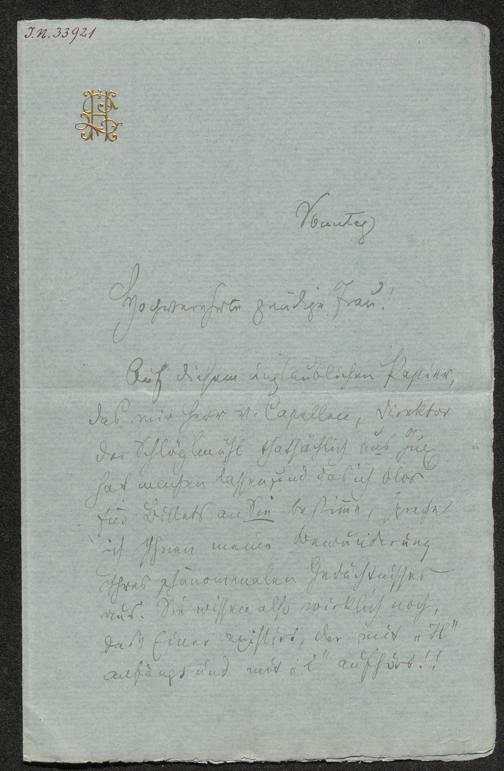 J.N. 33921
Sonntag
Hochverehrte gnädige Frau!
Auf diesem unglaublichen Papier,
das mir Herr v. Capellen, Direktor
der Schlöglmühl thatsächlich aus
hat machen lassen und das ich blos
für Billets an Sie bestime, spreche
ich Ihnen meine Bewunderung
Ihres phänomenalen Gedächtnisses
aus. Sie wissen also wirklich noch,
daß Einer existirt, der mit „H“
anfängt und mit „l“ aufhört!!